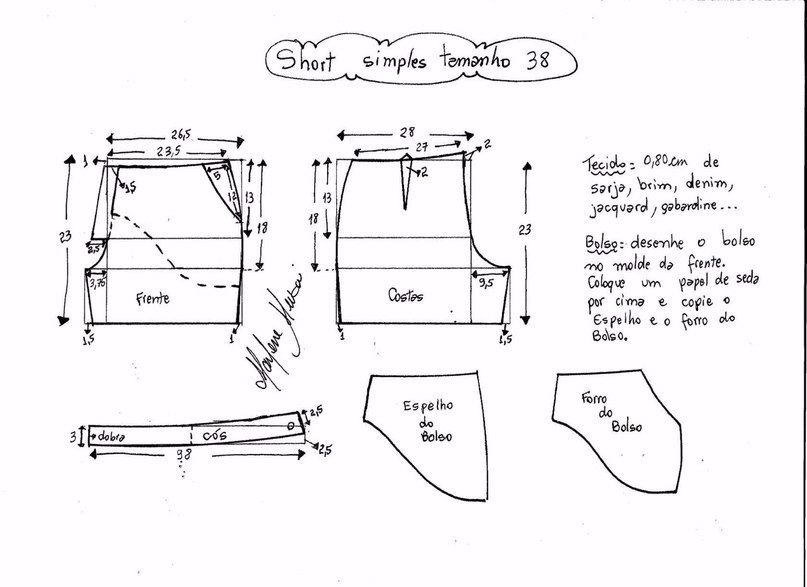 Short simples tamanho 38
26,5
23,5
1
1,5
5
12
13
18
23
2,5
3,75
Frente
1,5
1
28
27
2
2
13
18
23
9,5
Costas
1
1,5
Tecido = 0,80cm de
sarja, brim, denim,
jacquard, gabardine...
Bolso = desenhe o bolso
no molde da frente.
Coloque um papel de seda
por cima e copie o
Espelho e o forro do
Bolso.
Marlene Mukai
3
dobra
cós
2,5
2,5
98
Espelho
do
Bolso
Forro
do
Bolso